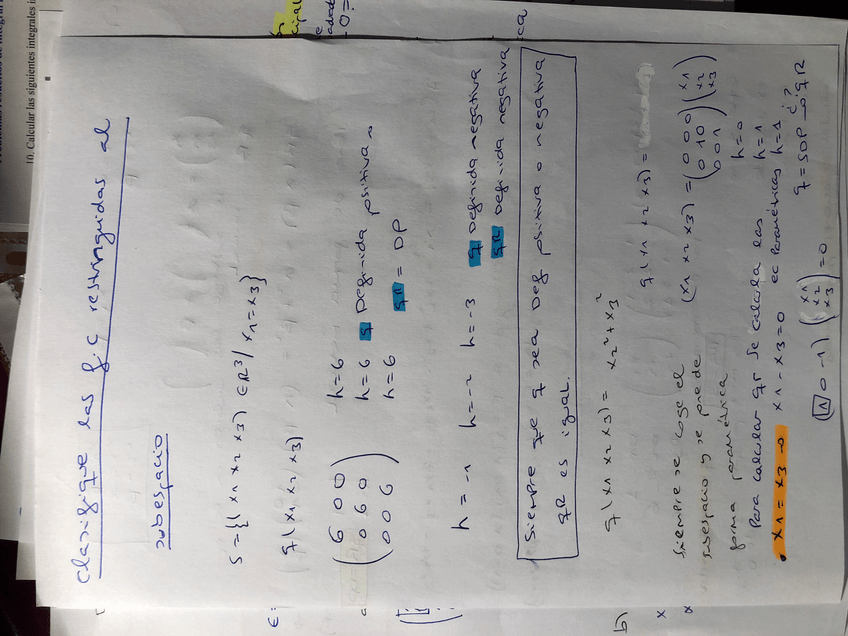 10. Calcular las siguientes integrales i
Clasifique las f.c restringuidas al
subespacio
S={(x1 x2 x3) ∈ R³/ x1=x3}
q(x1 x2 x3)
(6 0 0
0 6 0
0 0 6)
h=6
h=6 q Definida positiva
h=6 qR = DP
h=-1 h=-2 h=-3 q Definida negativa
qR Definida negativa
Siempre que q sea Def positiva o negativa
qR es igual.
q(x1 x2 x3)= x2²+x3²
Siempre se coge el
subespacio y se pone de
forma paramétrica
q(x1 x2 x3)=
(x1 x2 x3)=(0 0 0
0 1 0
0 0 1)(x1
x2
x3)
h=0
h=1
h=1
Para calcular qR se calcula las
ec Paramétricas
• x1=x3=0 x1-x3=0
q=SDP → ¿? qR
(1 0 -1)(x1
x2
x3)=0
b)